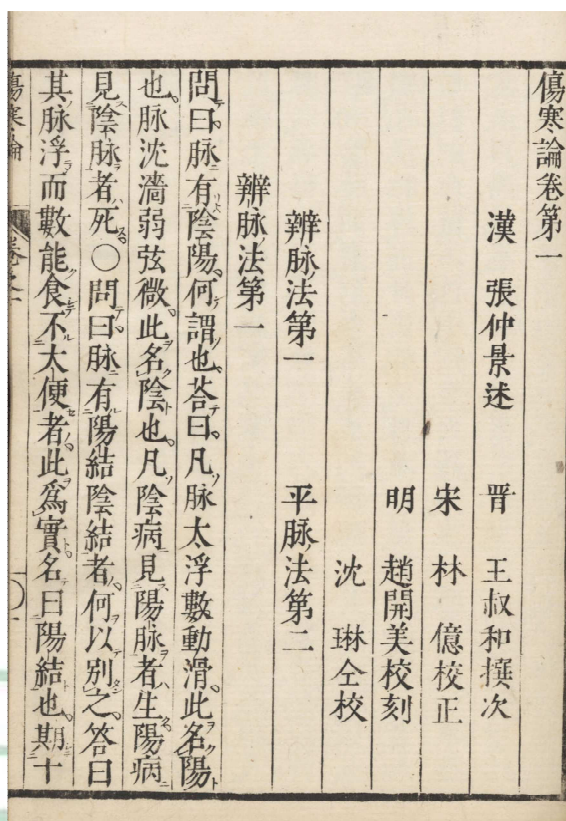 傷寒論卷第一
漢 張仲景述 晋 王叔和撰次
宋 林 億校正
明 趙開美校刻
沈 琳仝校
辨脉法第一 平脉法第二
辨脉法第一
問曰脉有陰陽何謂也荅曰凡脉大浮數動滑此名陽
也脉沈濇弱弦微此名陰也凡陰病見陽脉者生陽病
見陰脉者死〇問曰脉有陽結陰結者何以別之答曰
其脉浮而數能食不大便者此爲實名曰陽結也期十
傷寒論 卷之一